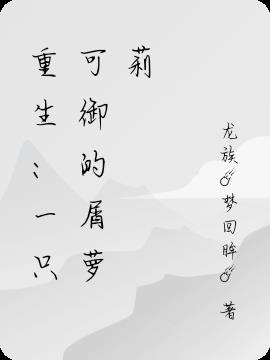 重生：一只
可御的屑萝
莉
龙族☄梦回眸☄ 著